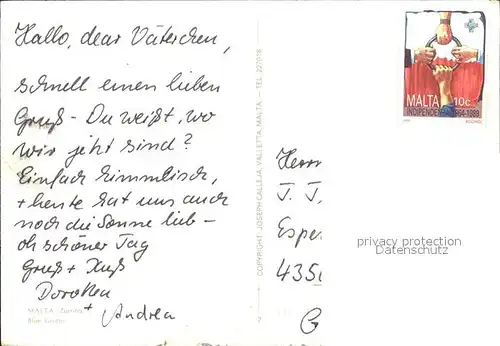 Hallo, dear Väterchen,
schnell einen lieben
Gruß - Du weißt, wo
wir jetzt sind?
Einfach himmlisch,
+ heute hat uns auch
noch die Sonne lieb -
oh schöner Tag
Gruß + Kuß
Dorothea
+ Andrea
MALTA Zurrieq
Blue Grotto
COPYRIGHT: JOSEPH CALLEJA, VALLETTA, MALTA - TEL.
MALTA 10c
INDIPENDENZA 1964-1989
Herrn
J. J.
Esper
435
G
privacy protection
Datenschutz